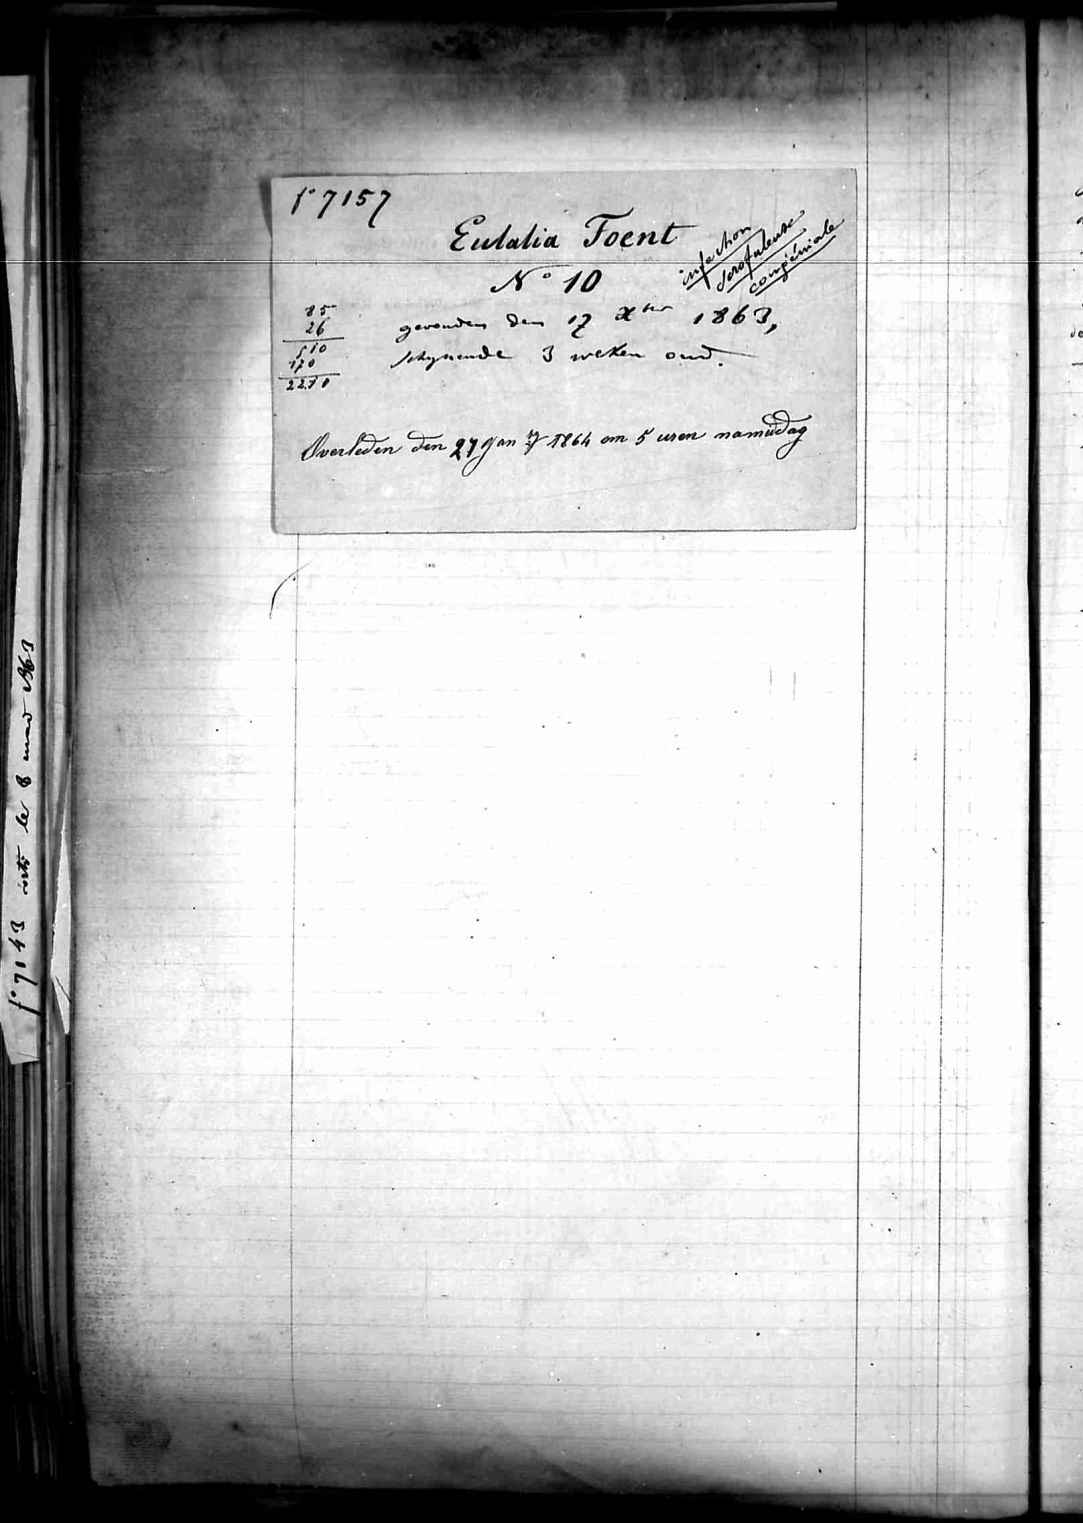 f° 7157
Eulalia Foent
N° 10
infection
scrofuleuse
congéniale
85
26
510
170
2210
gevonden den 17 Xber 1863,
schynende 3 weken oud.
Overleden den 27 Jan 1864 om 5 uren namiddag
f° 7143 le 8 1863